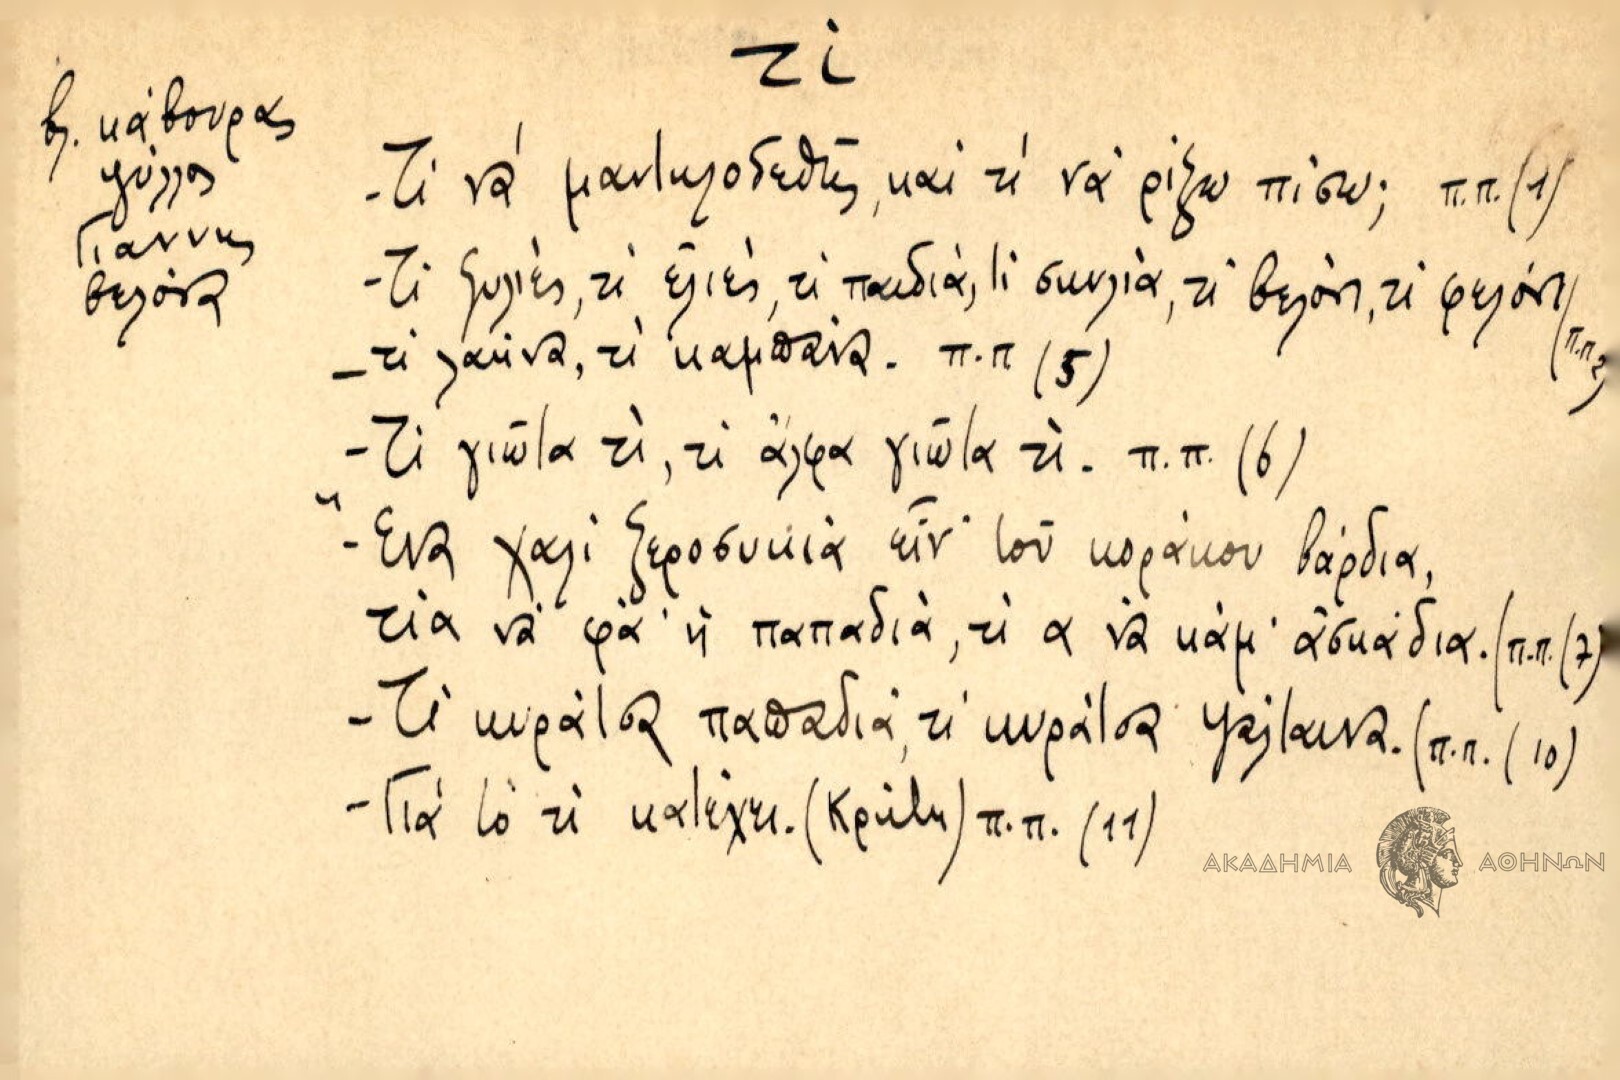 τὶ
βλ. κάβουρας
ψύλλος
Γιάννης
βελόνα
-Τί νά μαντηλοδεθῆς, καί τί νά ρίξω πίσω; π.π. (1)
-Τί ξυλιές, τί ἐλιές, τί παιδιά, τί σκυλιά, τί βελόνι, τί φελόνι (π.π 2)
-τί λαήνα, τί καμπάνα. π.π (5)
-Τί γιῶτα τὶ, τί ἄλφα γιῶτα τὶ. π.π. (6)
-Ἕνα χαλί ξεροσυκιά εἶν' τοῦ κοράκου βάρδια,
τία νά φά' ἡ παπαδιά, τί α νά κάμ' ἀσκάδια. (π.π. (7)
-Τί κυράτσα παπαδιά, τί κυράτσα ψάλταινα. (π.π. (10)
-Γιά τό τί κατέχει. (Κρήτη) π.π. (11)
ΑΚΑΔΗΜΙΑ ΑΘΗΝΩΝ